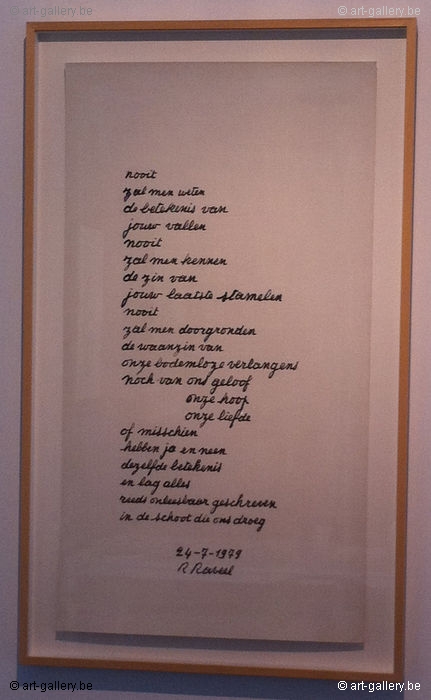 © art-gallery.be © art-gallery.be
nooit
zal men weten
de betekenis van
jouw vallen
nooit
zal men kennen
de zin van
jouw laatste stamelen
nooit
zal men doorgronden
de waanzin van
onze bodemloze verlangens
noch van ons geloof
onze hoop
onze liefde
of misschien
hebben ja en neen
dezelfde betekenis
en lag alles
reeds onleesbaar geschreven
in de schoot die ons droeg
24-7-1979
R Raveel
© art-gallery.be © art-gallery.be